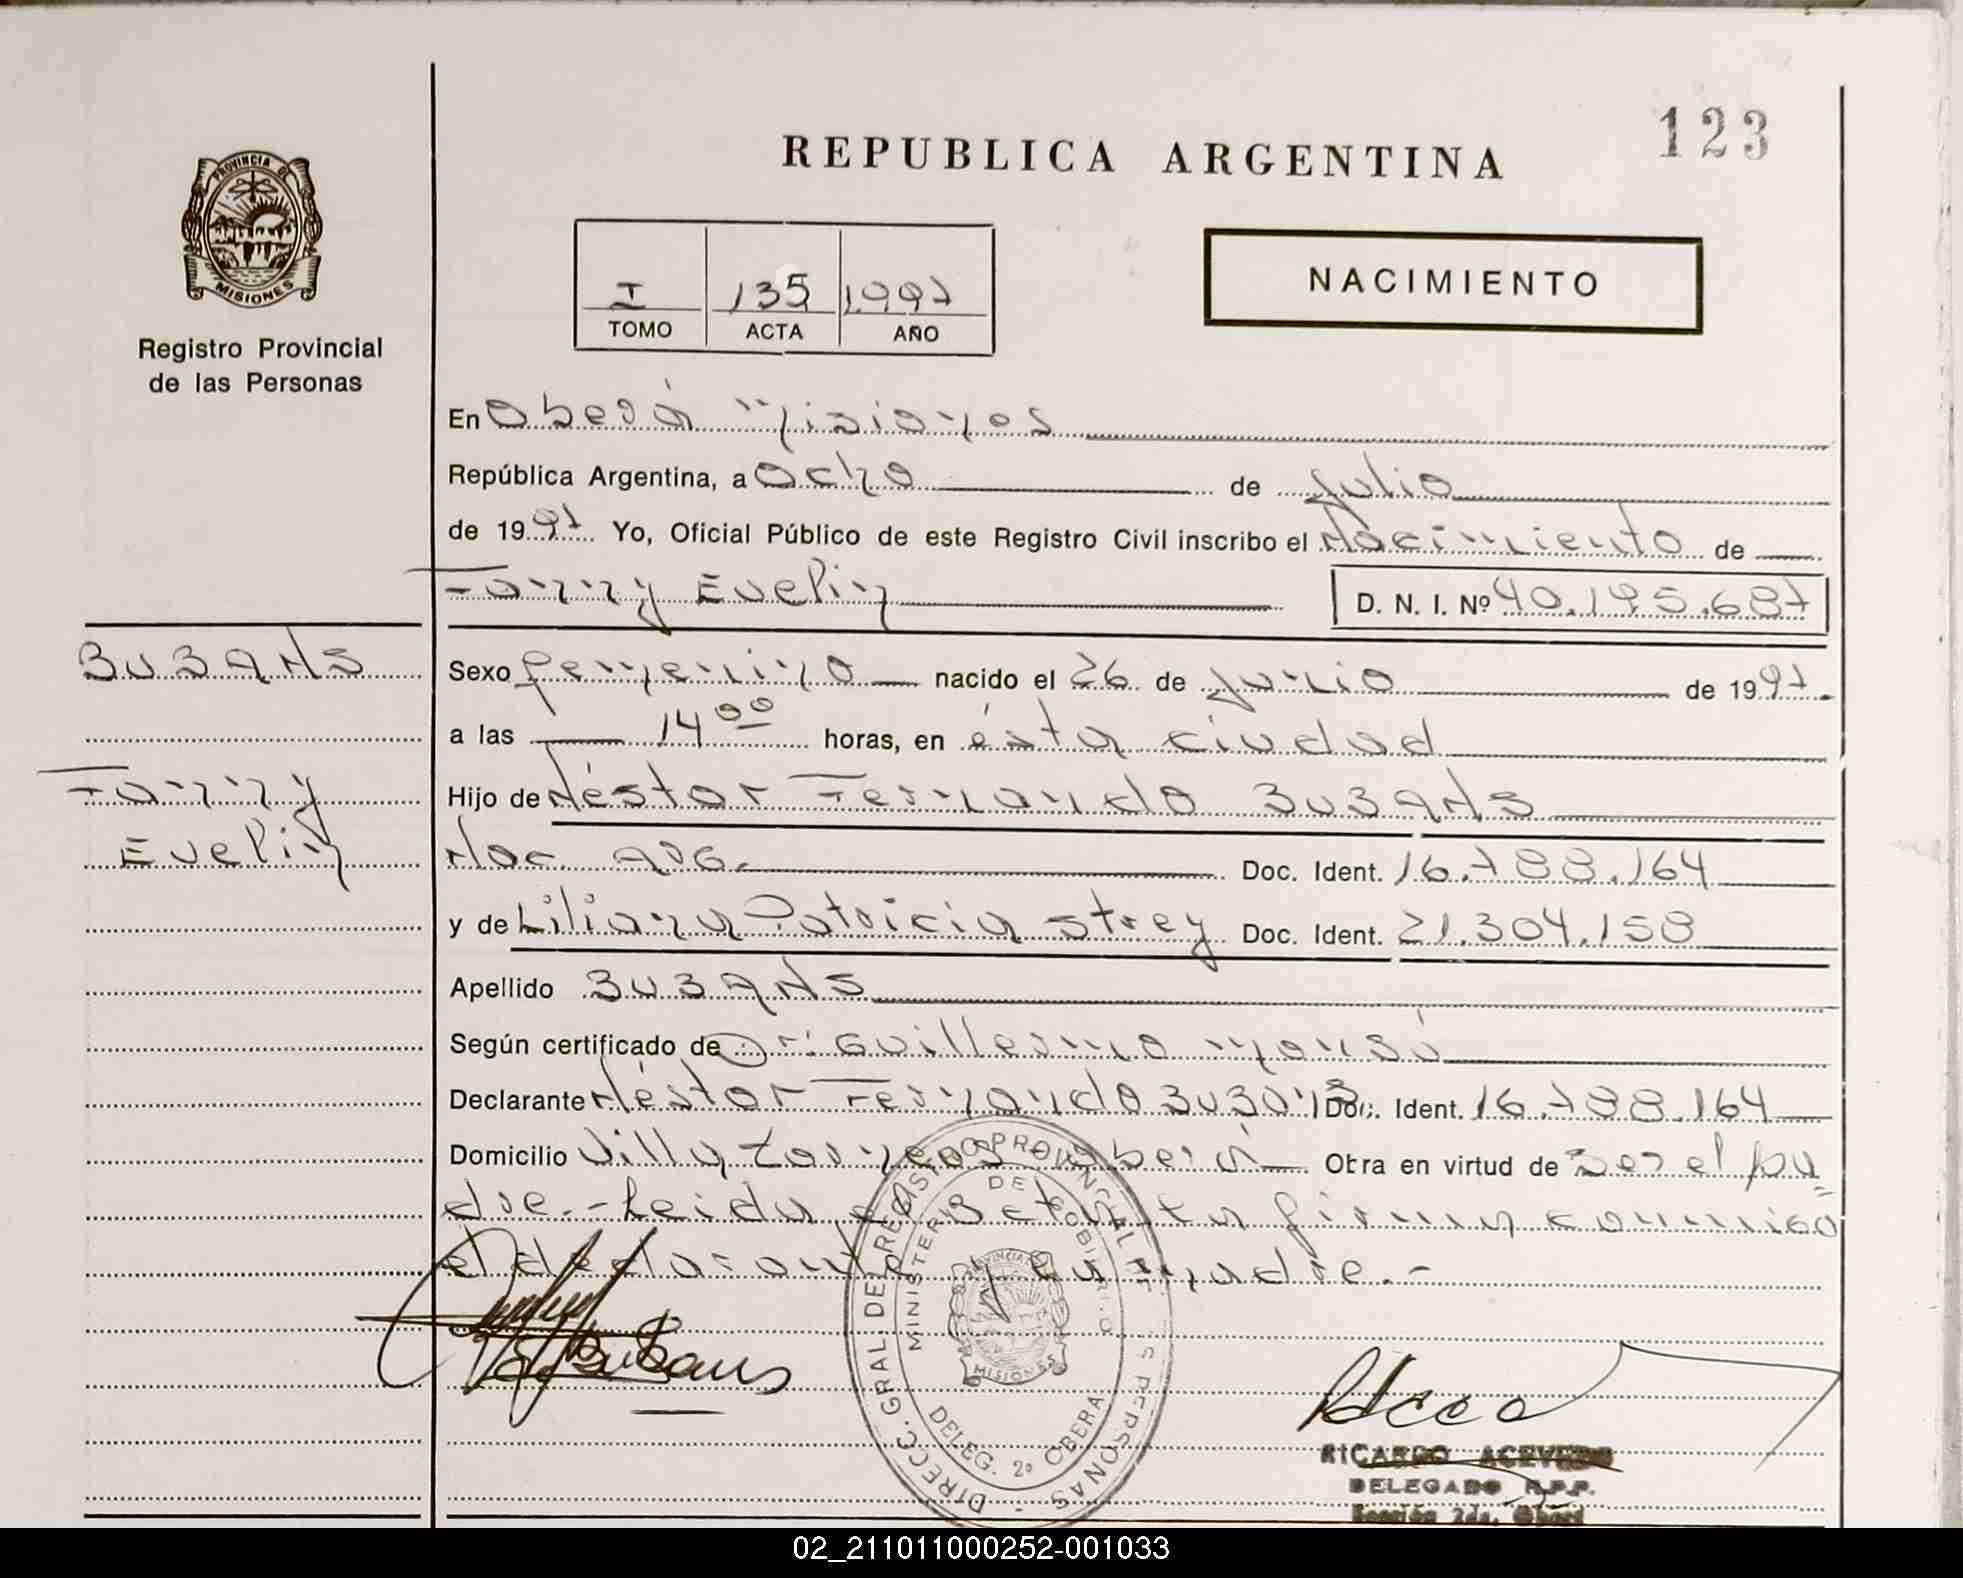 PROVINCIA DE
MISIONES
Registro Provincial
de las Personas
123
REPUBLICA ARGENTINA
I 135 1.997
TOMO ACTA AÑO
NACIMIENTO
En Oberá Misiones
República Argentina, a Ocho de julio
de 1997 Yo, Oficial Público de este Registro Civil inscribo el Nacimiento de
Fanny Evelin D. N. I. Nº 40.195.687
BUBANS
Sexo femenino nacido el 26 de junio de 1997.
a las 14 00 horas, en ésta ciudad
Fanny
Evelin
Hijo de Néstor Fernando BUBANS
Nac. ARG. Doc. Ident. 16.788.164
y de Liliana Patricia Strey Doc. Ident. 21.304.158
Apellido BUBANS
Según certificado de Dr: Guillermo
Declarante Néstor Fernando Bubans Doc. Ident. 16.788.164
Domicilio Villa Oberá Otra en virtud de Ser el pa=
dre.- Leida el Acta la firman conmigo
el declarante y la madre.-
Bubans
DIRECC. GRAL DE REGISTRO PROVINCIAL DE LAS PERSONAS
MINISTERIO DE GOBIERNO
PROVINCIA DE
MISIONES
DELEG. 2º OBERA
RICARDO ACEVEDO
DELEGADO R.P.P.
Sección 2da. Oberá
02_211011000252-001033